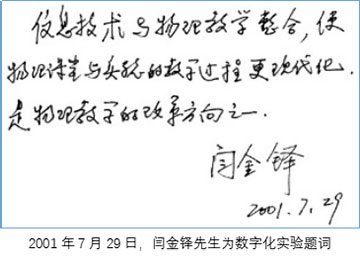 信息技术与物理教学整合,使
物理课堂与实验的教学过程更现代化.
是物理教学的改革方向之一.
闫金铎
2001.7.29
2001年7月29日，闫金铎先生为数字化实验题词